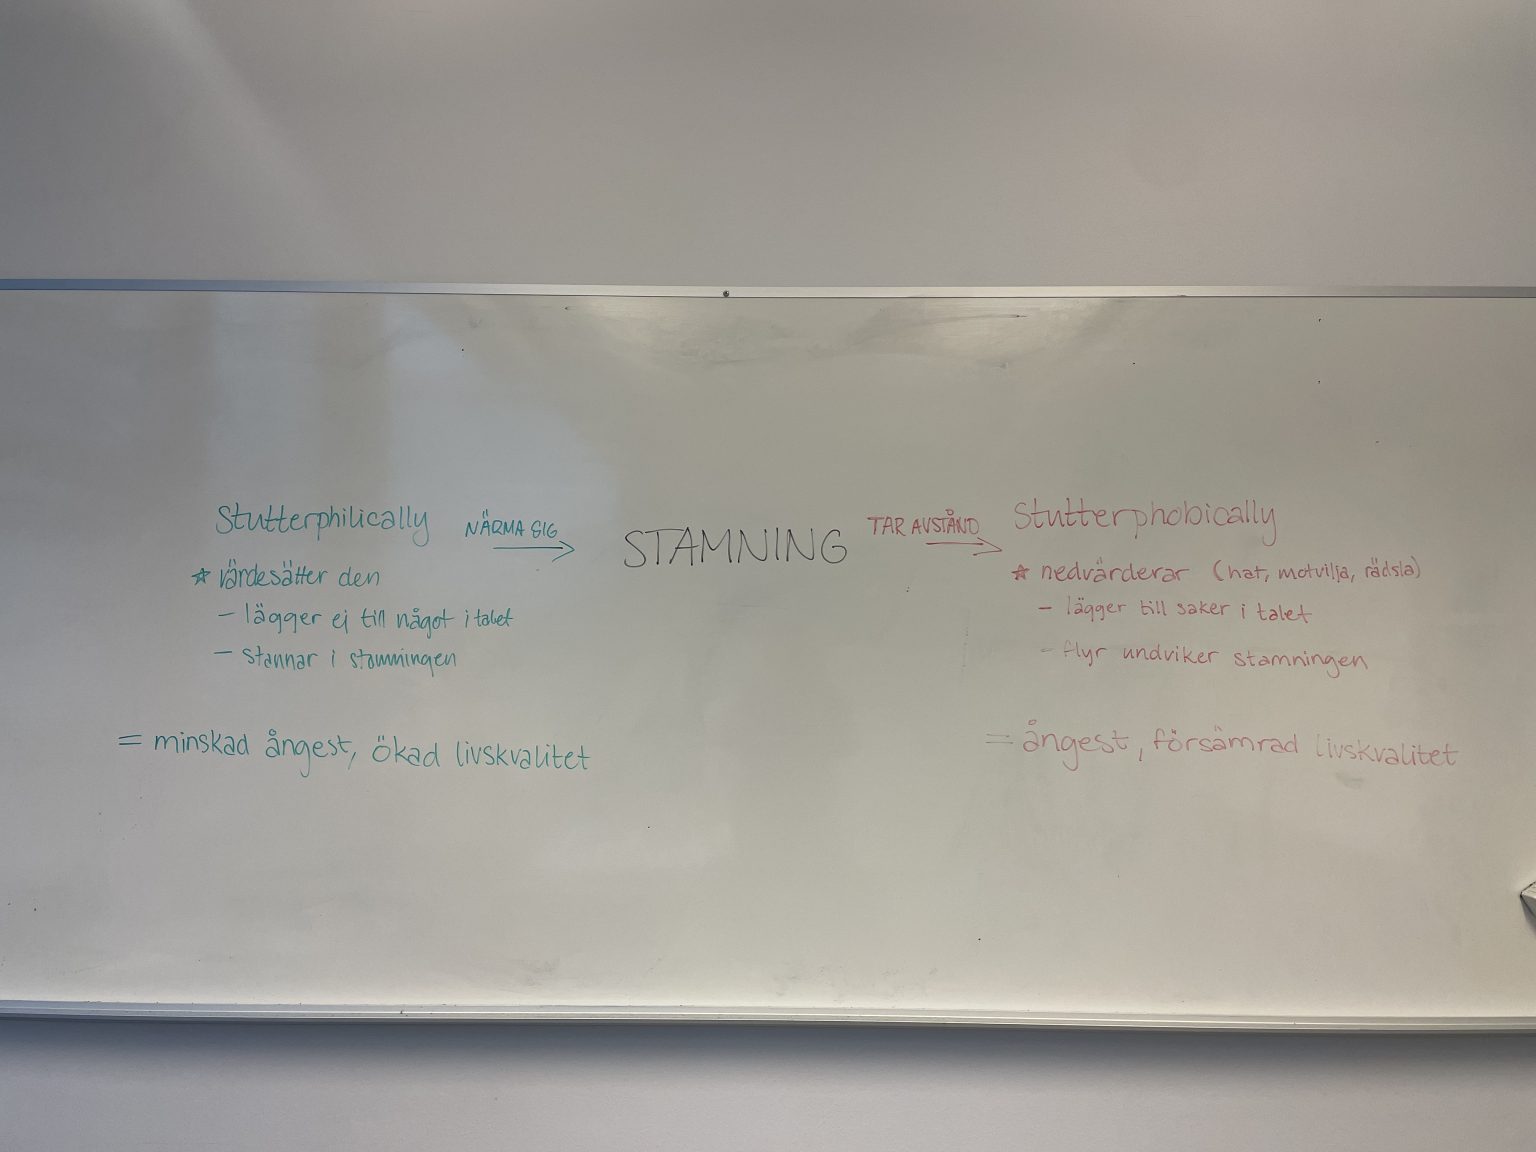 Stutterphilically
NÄRMA SIG
☆ värdesätter den
– lägger ej till något i talet
– stannar i stamningen
= minskad ångest, ökad livskvalitet
STAMNING
TAR AVSTÅND
Stutterphobically
☆ nedvärderar (hat, motvilja, rädsla)
– lägger till saker i talet
– flyr undviker stamningen
= ångest, försämrad livskvalitet